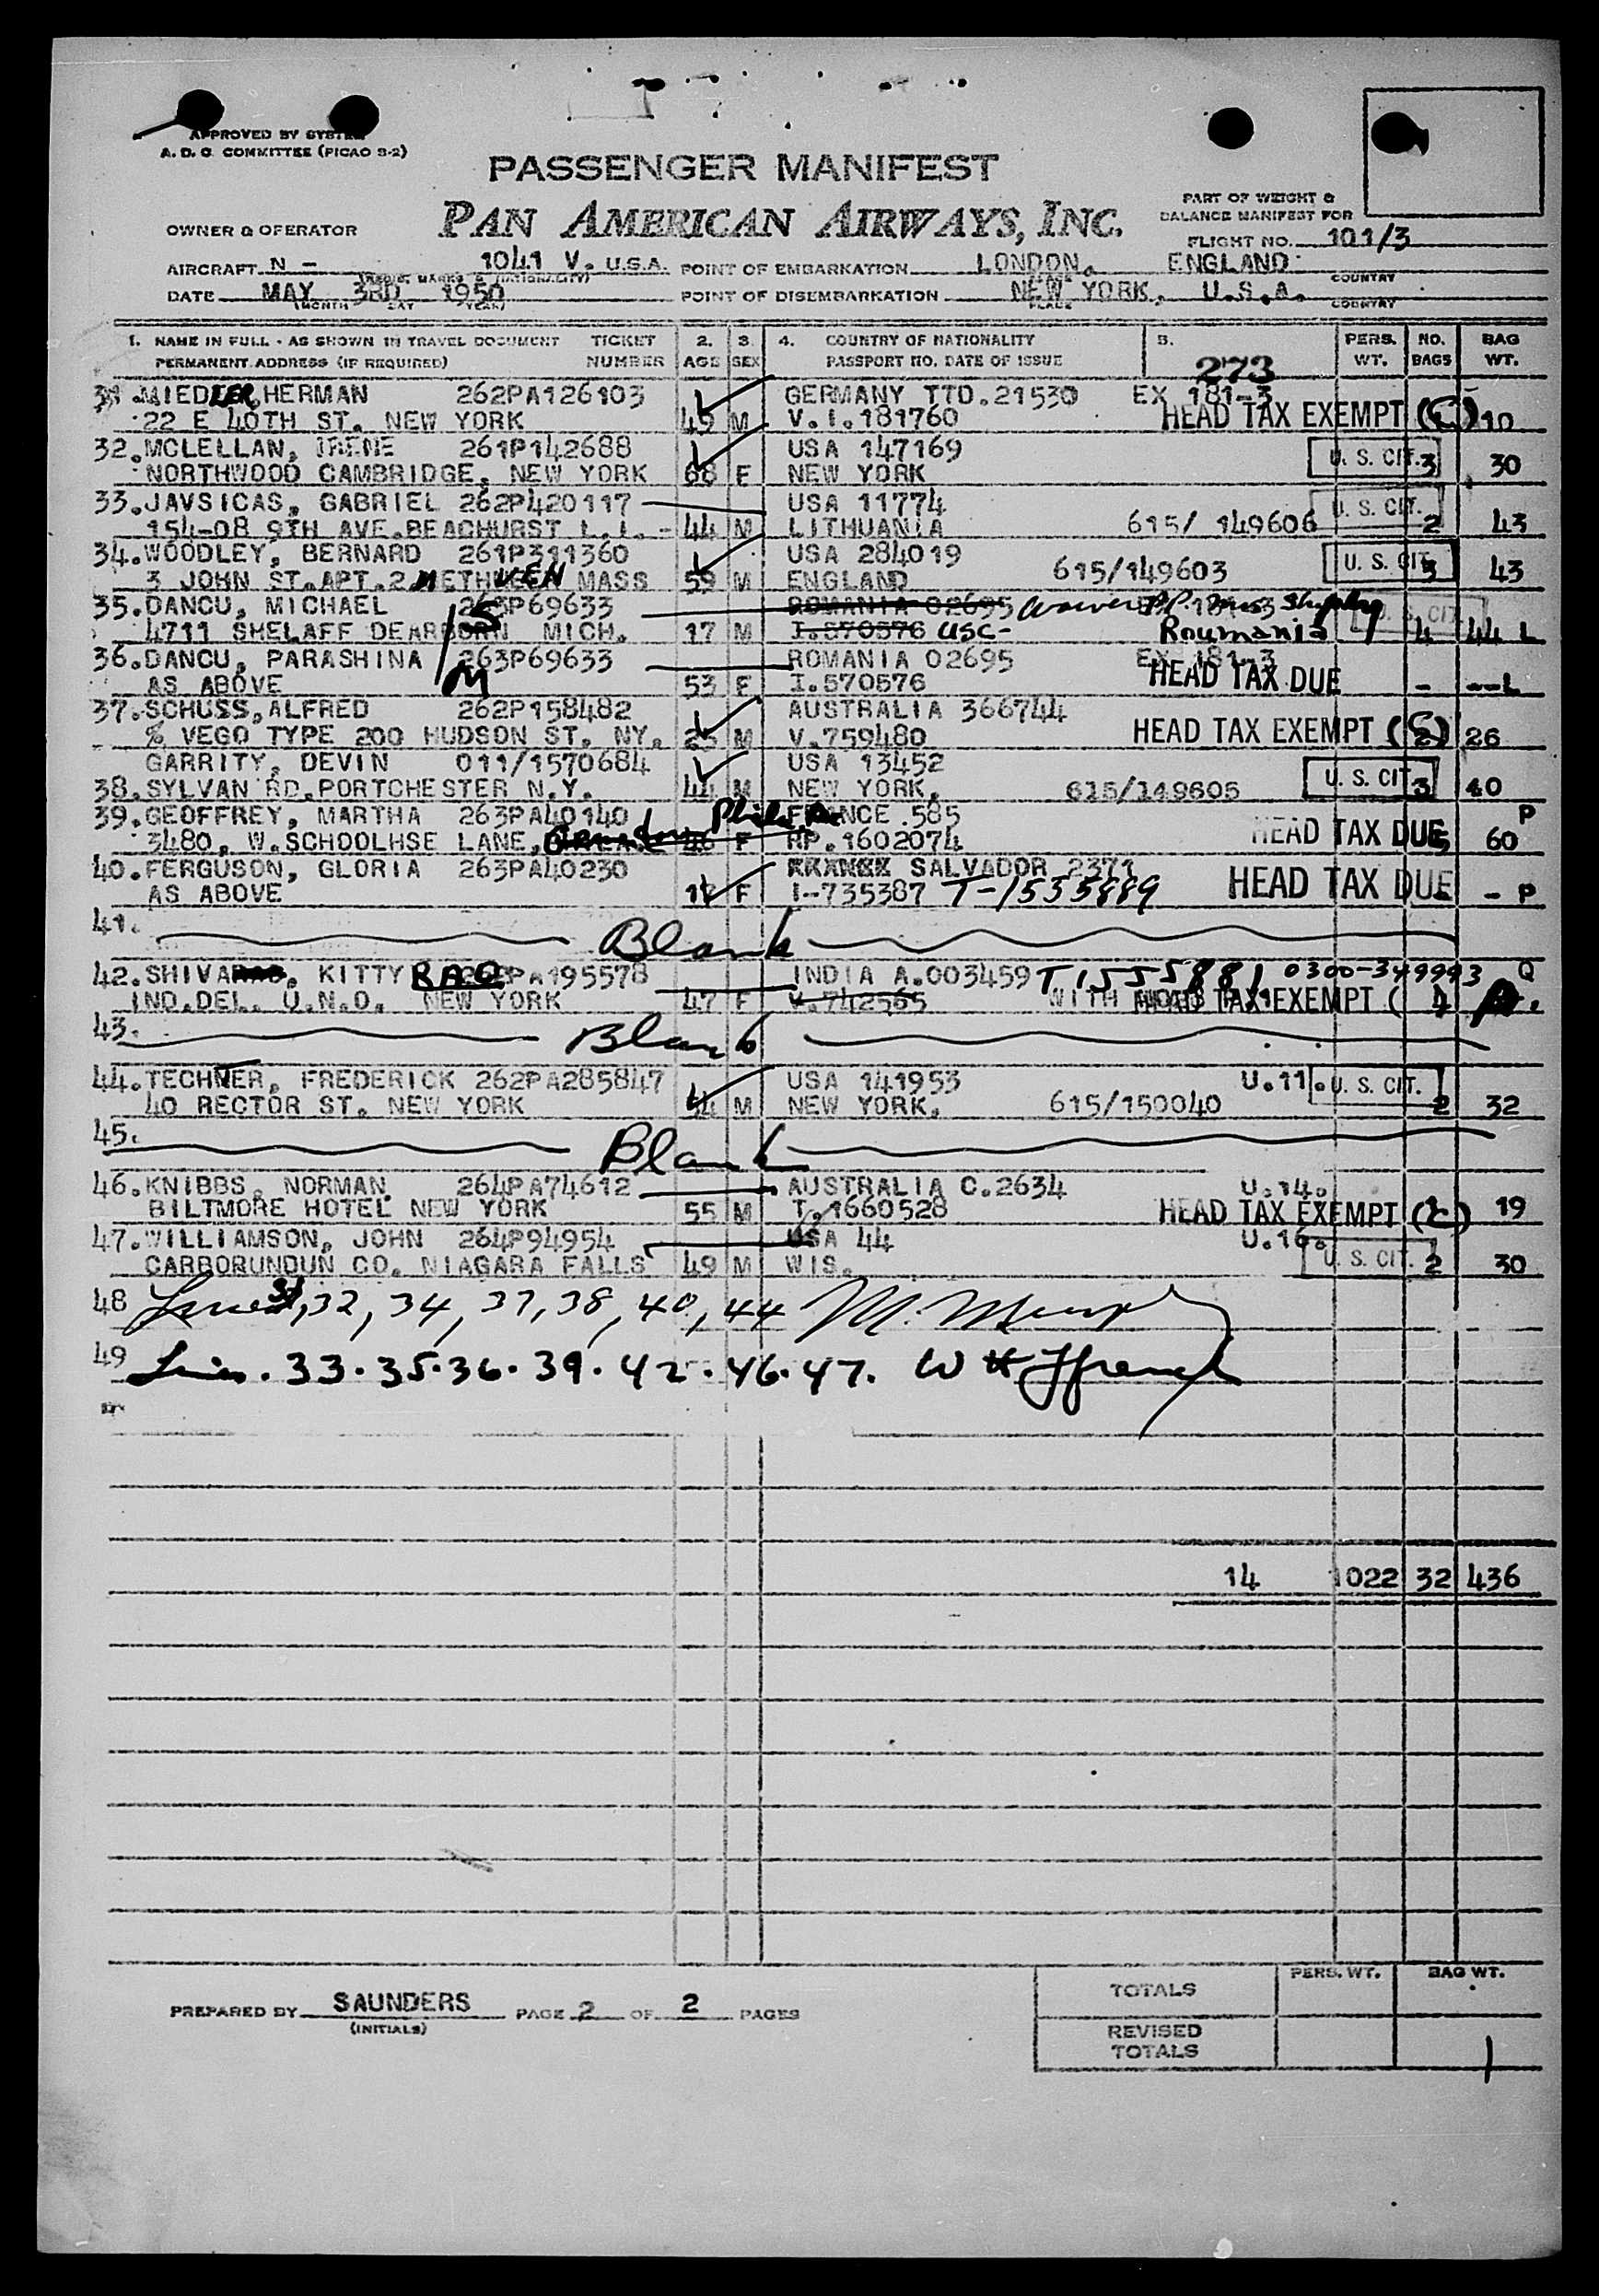 APPROVED BY SYSTEM
A. D. C. COMMITTEE (PICAO S-2)
PASSENGER MANIFEST
PART OF WEIGHT &
BALANCE MANIFEST FOR
OWNER & OPERATOR PAN AMERICAN AIRWAYS, INC.
FLIGHT NO. 101/3
AIRCRAFT N - 1041 V. U.S.A. POINT OF EMBARKATION LONDON, ENGLAND
COUNTRY
DATE MAY 3RD 1950 POINT OF DISEMBARKATION NEW YORK, U.S.A.
(MONTH DAY YEAR) PLACE COUNTRY
1. NAME IN FULL - AS SHOWN IN TRAVEL DOCUMENT TICKET 2. 3. 4. COUNTRY OF NATIONALITY 5. PERS. NO. BAG
PERMANENT ADDRESS (IF REQUIRED) NUMBER AGE SEX PASSPORT NO. DATE OF ISSUE 273 WT. BAGS WT.
31. MIEDLER, HERMAN 262PA126103 GERMANY TTD.21530 EX 181-3
22 E 40TH ST. NEW YORK 49 M V.I.181760 HEAD TAX EXEMPT 10
32. MCLELLAN, IRENE 261P142688 USA 147169 U. S. CIT.
NORTHWOOD CAMBRIDGE, NEW YORK 68 F NEW YORK 3 30
33. JAVSICAS, GABRIEL 262P420117 USA 11774 U. S. CIT.
154-08 9TH AVE.BEACHURST L.I. - 44 M LITHUANIA 615/ 149606 2 43
34. WOODLEY, BERNARD 261P311360 USA 284019 U. S. CIT.
3 JOHN ST.APT.2 METHUEN MASS 59 M ENGLAND 615/149603 3 43
35. DANCU, MICHAEL /S 263P69633 ROMANIA 02695
4711 SHELAFF DEARBORN MICH. 17 M I.570576 USC- Roumania U. S. CIT. 4 44 L
36. DANCU, PARASHINA /M 263P69633 ROMANIA 02695 EX 181-3
AS ABOVE 53 F I.570576 HEAD TAX DUE - --L
37. SCHUSS, ALFRED 262P158482 AUSTRALIA 366744
% VEGO TYPE 200 HUDSON ST. NY. M V.759480 HEAD TAX EXEMPT 26
GARRITY, DEVIN 011/1570684 USA 13452
38. SYLVAN RD.PORTCHESTER N.Y. 44 M NEW YORK. 615/149605 U. S. CIT. 3 40
39. GEOFFREY, MARTHA 263PA40140 FRANCE 585 P
3480, W.SCHOOLHSE LANE, Phila Pa 46 F RP.1602074 HEAD TAX DUE 60
40. FERGUSON, GLORIA 263PA40230 FRANCE SALVADOR 2371
AS ABOVE F I-735387 T-1535889 HEAD TAX DUE - P
41. Blank
42. SHIVA, KITTY RAO PA195578 INDIA A.003459 T1555881 0300-349993 Q
IND.DEL. U.N.O. NEW YORK 47 F V.742565 WITH HEAD TAX EXEMPT ( 4
43. Blank
44. TECHNER, FREDERICK 262PA285847 USA 141953 U.11. U. S. CIT.
40 RECTOR ST. NEW YORK 54 M NEW YORK. 615/150040 2 32
45. Blank
46. KNIBBS, NORMAN 264PA74612 AUSTRALIA C.2634 U.14.
BILTMORE HOTEL NEW YORK 55 M T.1660528 HEAD TAX EXEMPT 19
47. WILLIAMSON, JOHN 264P94954 USA 44 U.16.
CARBORUNDUN CO. NIAGARA FALLS 49 M WIS. U. S. CIT. 2 30
48 Lines 31, 32, 34, 37, 38, 40, 44 M. Murphy
49 Lines. 33. 35. 36. 39. 42. 46. 47. W H Ffrench
14 1022 32 436
PREPARED BY SAUNDERS PAGE 2 OF 2 PAGES
(INITIALS)
PERS. WT. BAG WT.
TOTALS
REVISED
TOTALS